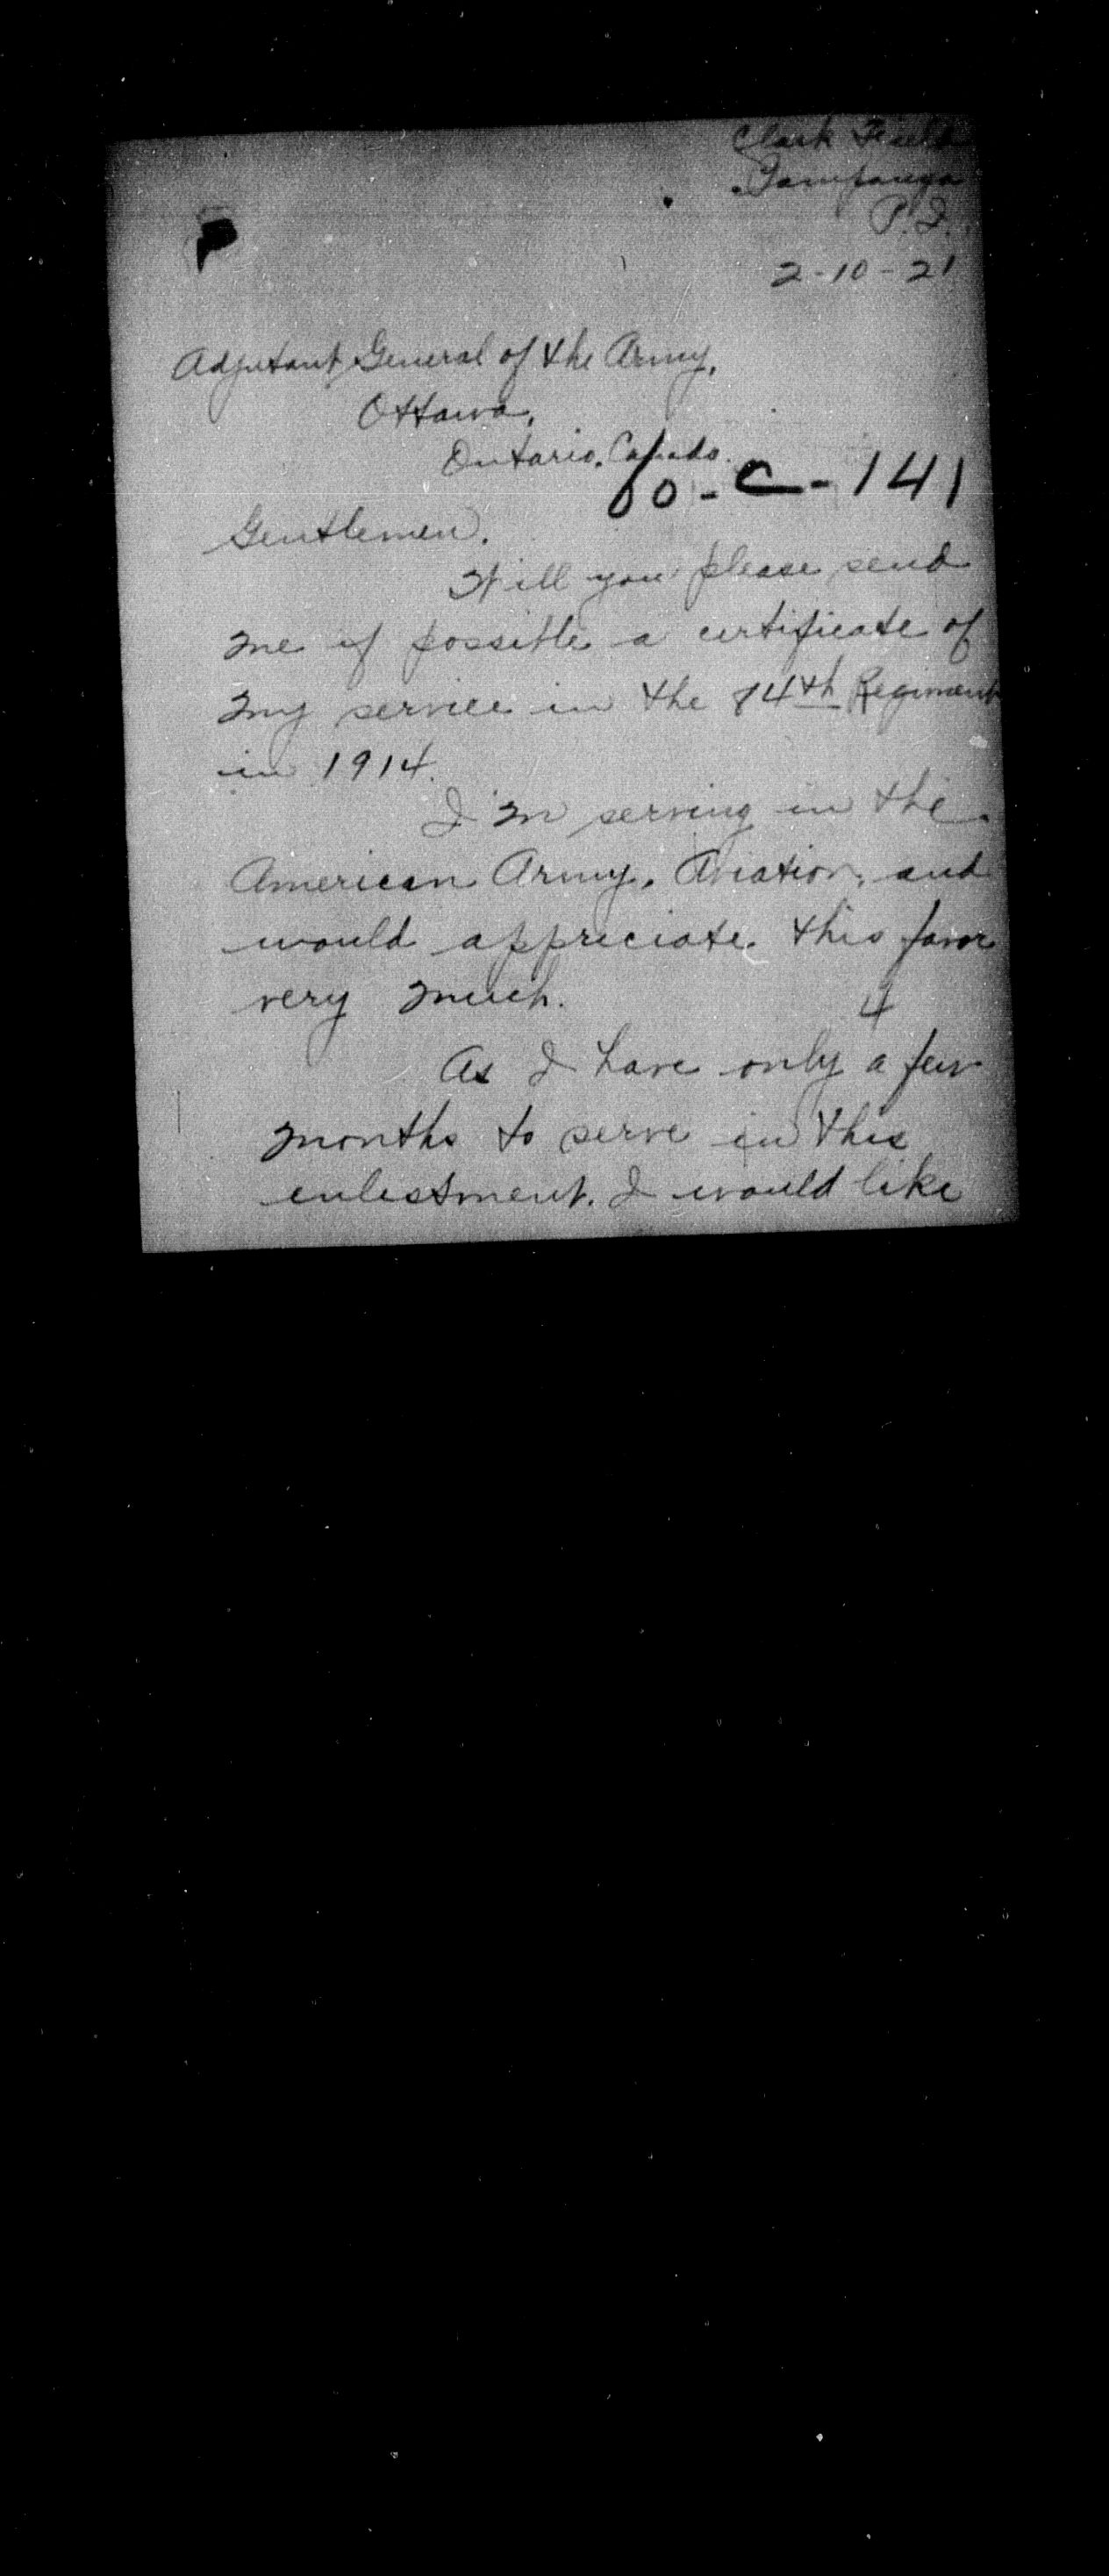 Clark Field
Pampanga
P.I.
2-10-21
Adjutant General of the Army,
Ottawa,
Ontario. Canada.
60-C-141
Gentlemen.
Will you please send
me if possible a certificate of
my service in the 84th Regiment
in 1914.
I'm serving in the
American Army. Aviation. and
would appreciate this favor
very much.
4
As I have only a few
months to serve in this
enlistment. I would like